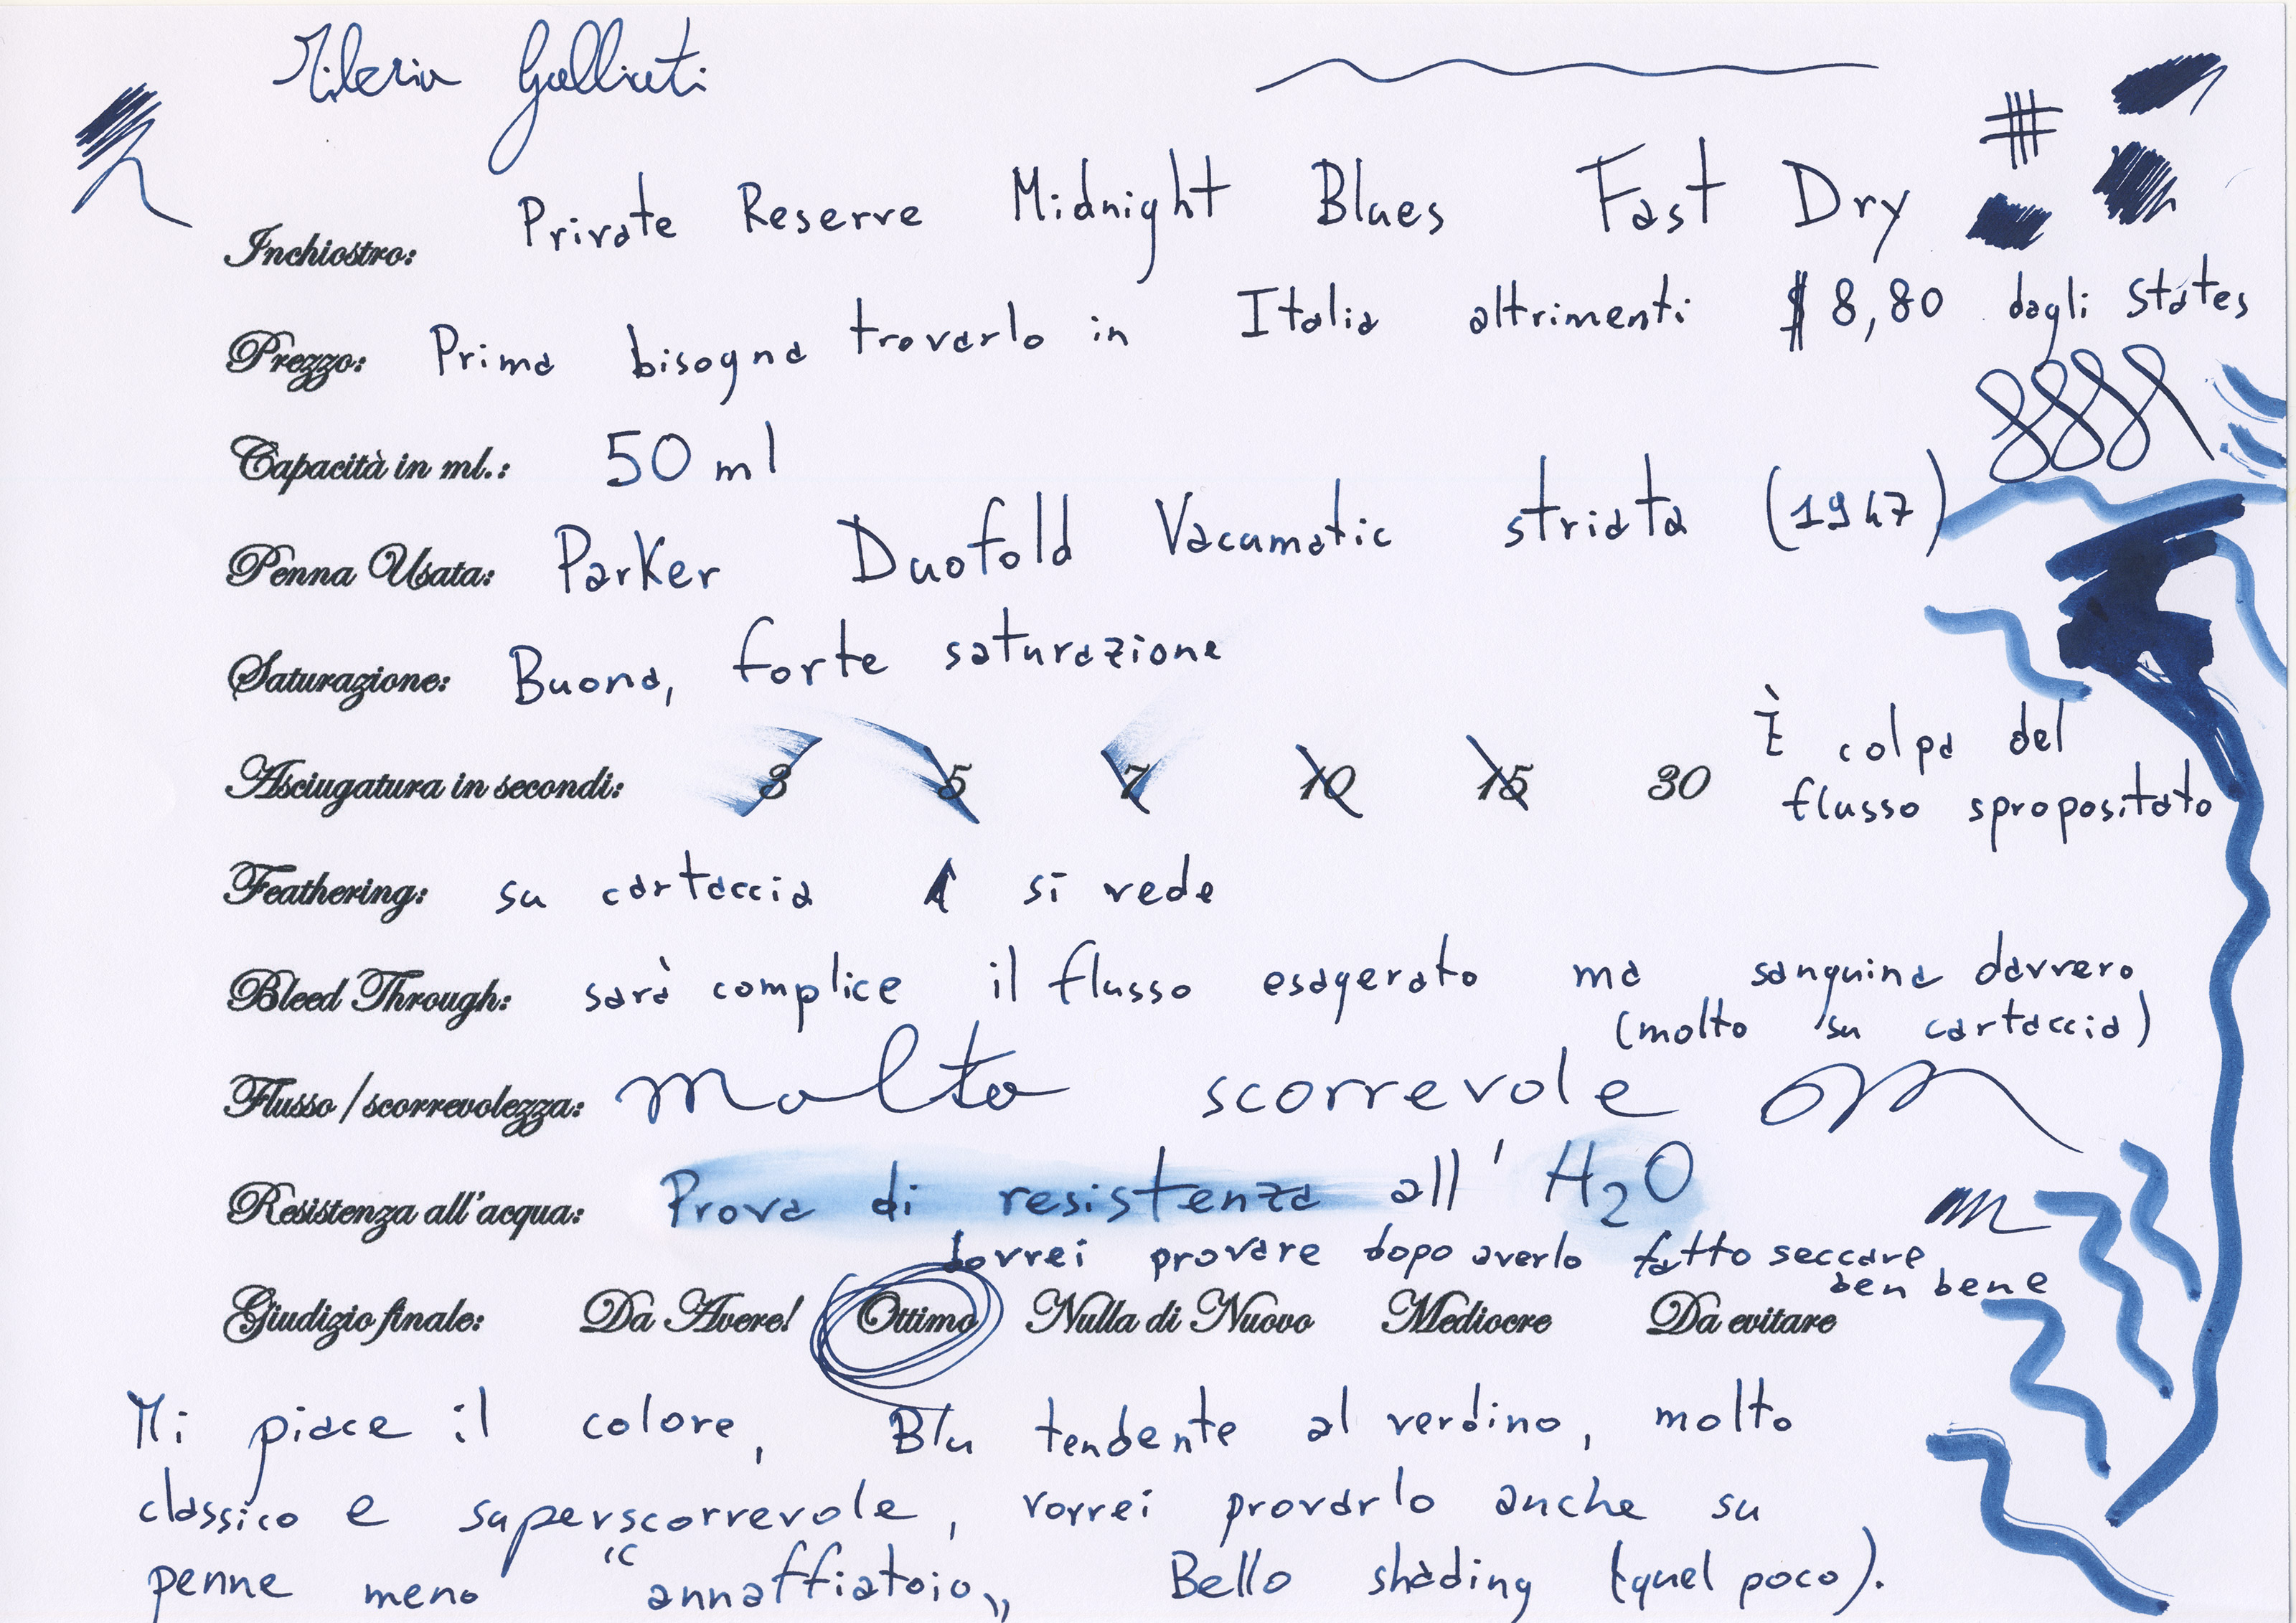 Inchiostro: Private Reserve Midnight Blues Fast Dry
Prezzo: Prima bisogna trovarlo in Italia altrimenti $ 8,80 dagli States
Capacità in ml.: 50 ml
Penna Usata: Parker Duofold Vacumatic striata (1947)
Saturazione: Buona, forte saturazione
Asciugatura in secondi: 3 5 7 10 15 30 È colpa del
flusso spropositato
Feathering: su cartaccia si vede
Bleed Through: sarà complice il flusso esagerato ma sanguina davvero
(molto su cartaccia)
Flusso / scorrevolezza: Molto scorrevole
Resistenza all'acqua: Prova di resistenza all' H2O
dovrei provare dopo averlo fatto seccare
ben bene
Giudizio finale: Da Avere! Ottimo Nulla di Nuovo Mediocre Da evitare
Mi piace il colore, Blu tendente al verdino, molto
classico e superscorrevole, vorrei provarlo anche su
penne meno “annaffiatoio„ Bello shading (quel poco).